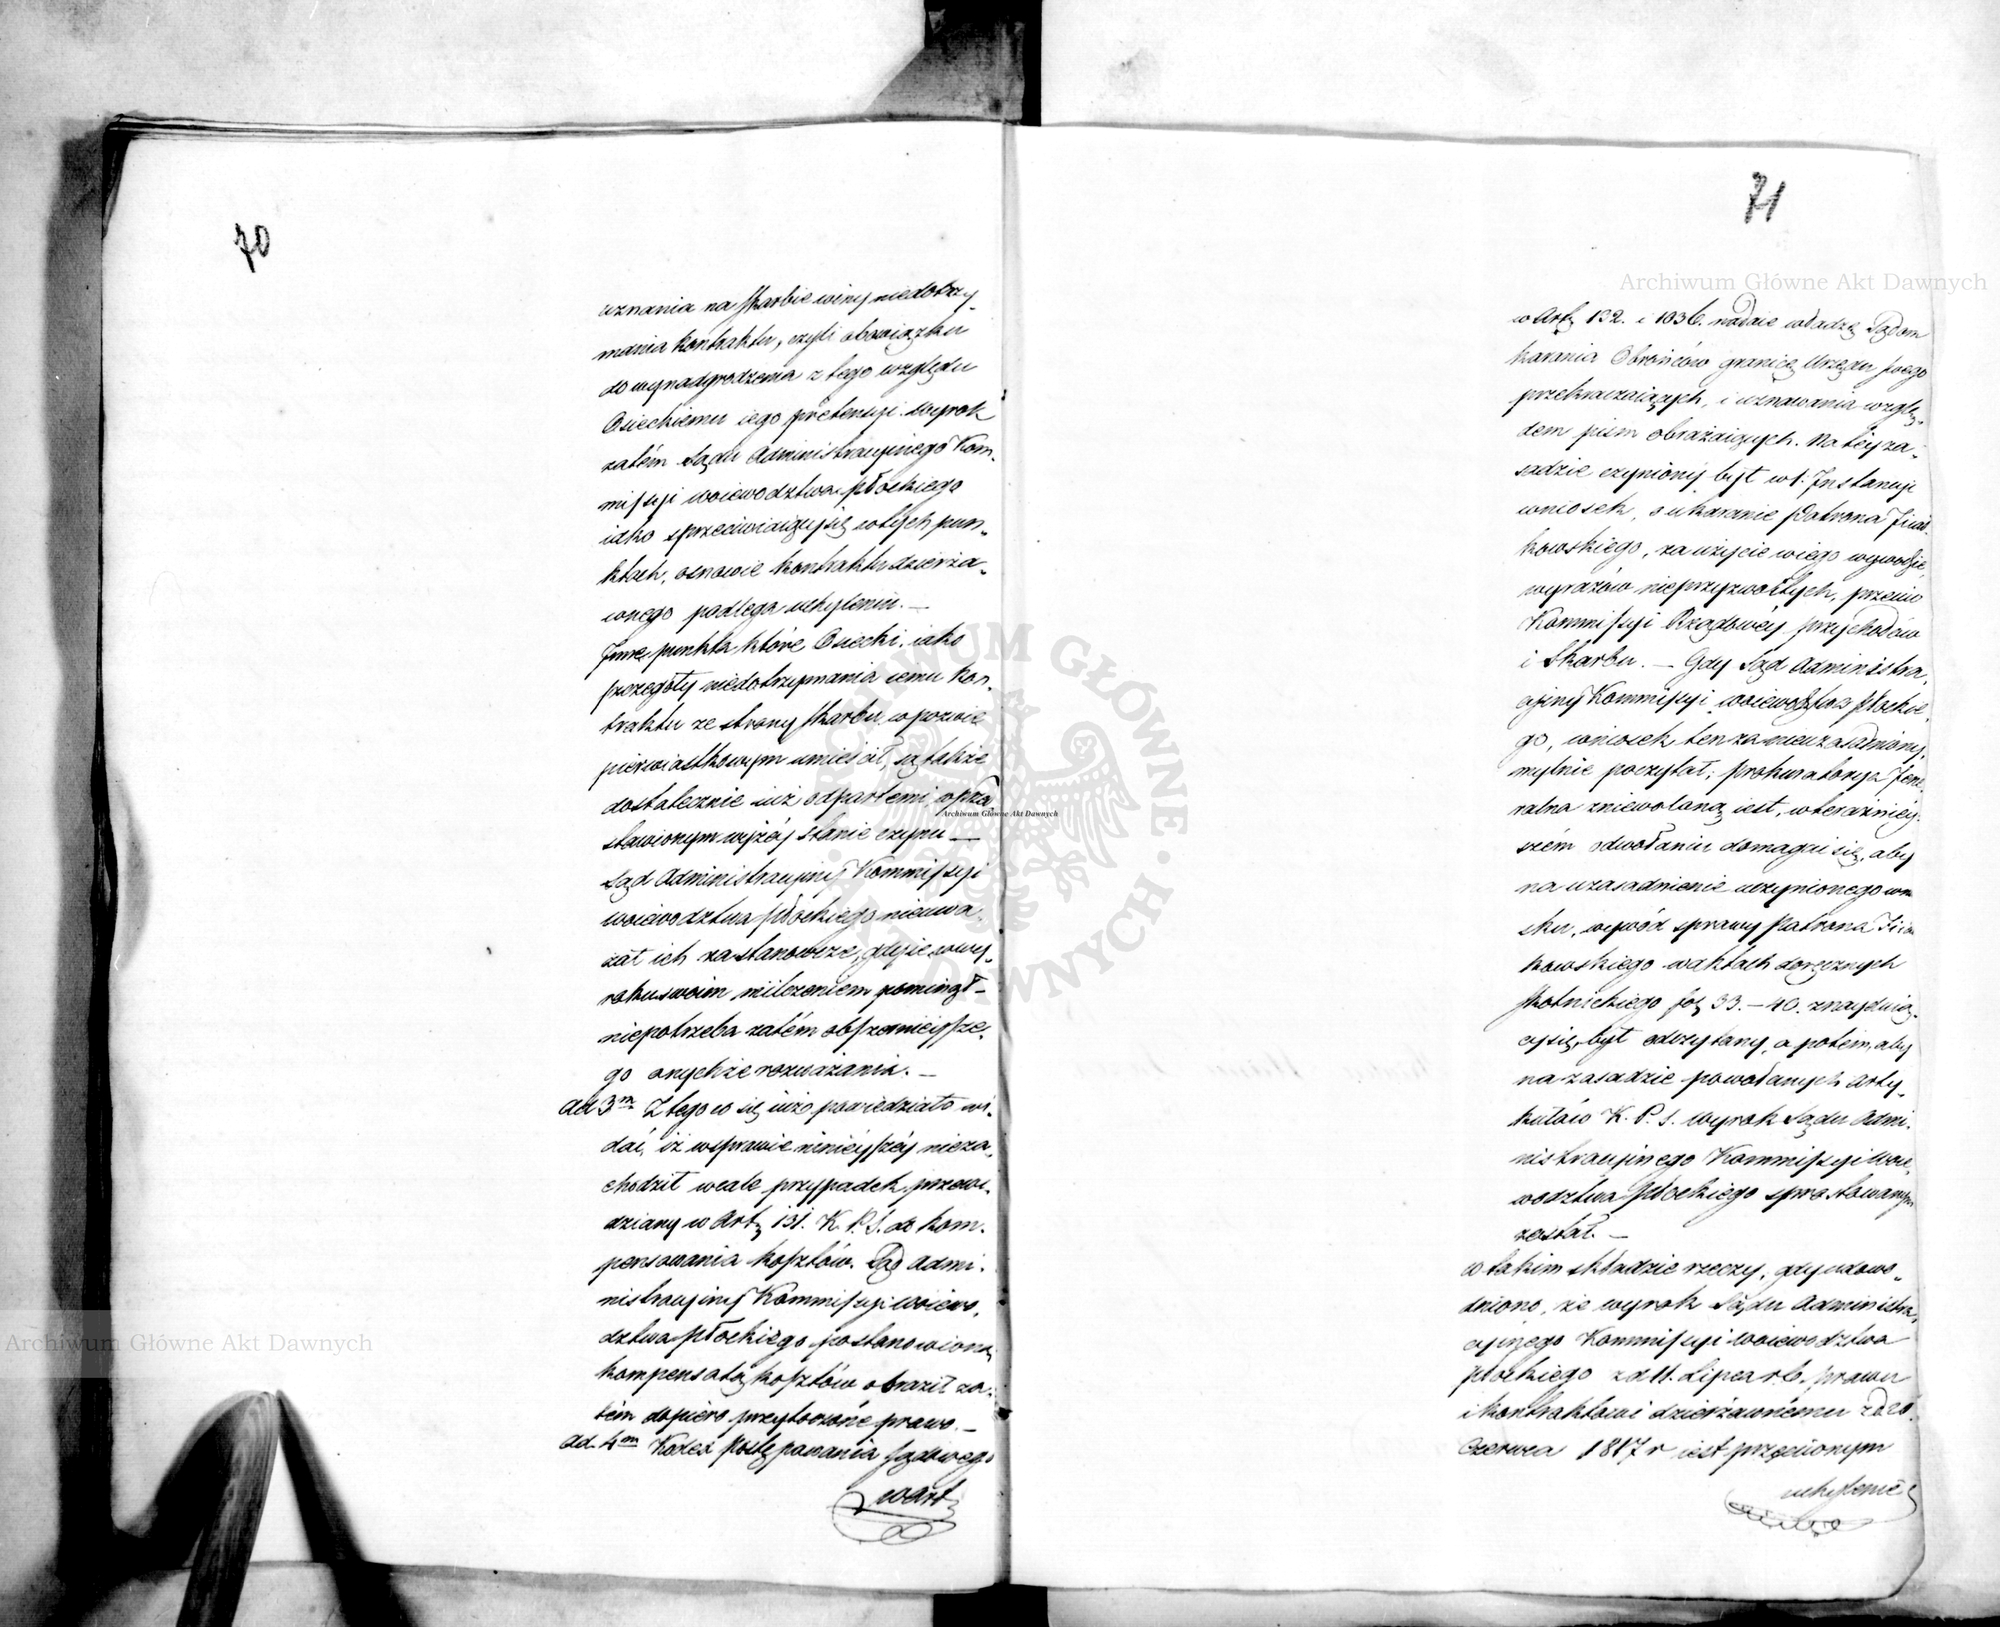 70
uznania na Skarbie winy niedotrzy-
mania kontraktu, czyli obowiązku
do wynadgrodzenia z tego względu
Osieckiemu iego pretensyi. Wyrok
zatém Sądu Administracyinego Kom-
missyi woiewodztwa płockiego
iako sprzeciwiaiącysię wtych pun-
ktach, osnowie kontraktu dzierża-
wnego podlega uchyleniu. —
Inne punkta które Osiecki, iako
szczegóły niedotrzymania iemu kon-
traktu ze strony Skarbu, w pozwie
pierwiastkowym umieścił, są także
dostatecznie iuż odpartemi, w przed-
stawionym wyżéy stanie czynu —
Sąd Administracyiny Kommissyi
woiewodztwa płockiego nieuwa-
żał ich za stanowcze, gdy ie w wy-
roku swoim milczeniem pominął —
niepotrzeba zatém obszernieysze-
go onychże rozważania. —
Ad 3m Z tego co się iuż powiedziało wi-
dać, iż wsprawie ninieyszéy nieza-
chodził wcale przypadek przewi-
dziany w Art. 131. K. P. S. do kom-
pensowania kosztów. Sąd Admi-
nistracyiny Kommissyi Woiewo-
dztwa Płockiego postanowioną
kompensatą kosztów obraził za-
tém dopiero przytoczone prawo. —
Ad. 4m Kodex Postępowania Sądowego
w Art.
71
w Art. 132. i 1036. nadaie władzę Sądom
karania Obrońców granice Urzędu swego
przekraczaiących, i uznawania wzglę-
dem pism obrażaiących. Na téy za-
sadzie czyniony był w 1. Instancyi
wniosek, o ukaranie Patrona
kowskiego, za użycie w iego wywodzie
wyrazów nieprzyzwoitych, przeciw
Kommissyi Rządowéy przychodów
i Skarbu. — Gdy Sąd Administra-
cyiny Kommissyi woiewodztwa Płockie-
go, wniosek ten za nieuzasadniony
mylnie poczytał; prokuratorya Jene-
ralna zniewoloną iest, w teraźniey-
szém odwołaniu domagać się, aby
na uzasadnienie uczynionego wnio-
sku, wywód sprawy Patrona
kowskiego w aktach doręcznych
Skotnickiego fol. 33. — 40. znayduią-
cy się, był odczytany, a potém, aby
na zasadzie powołanych Arty-
kułów K. P. S. wyrok Sądu Admi-
nistracyinego Kommissyi Woie-
wodztwa płockiego sprostowanym
został. —
W takim składzie rzeczy, gdy udowo-
dniono, że wyrok Sądu Administra-
cyinego Kommissyi woiewodztwa
płockiego z d 11. Lipca r. b. prawu
i kontraktowi dzierżawnemu z d 20.
Czerwca 1817 r iest przeciwnym
uchylenie
Archiwum Główne Akt Dawnych
Archiwum Główne Akt Dawnych
Archiwum Główne Akt Dawnych
ARCHIWUM GŁÓWNE AKT DAWNYCH